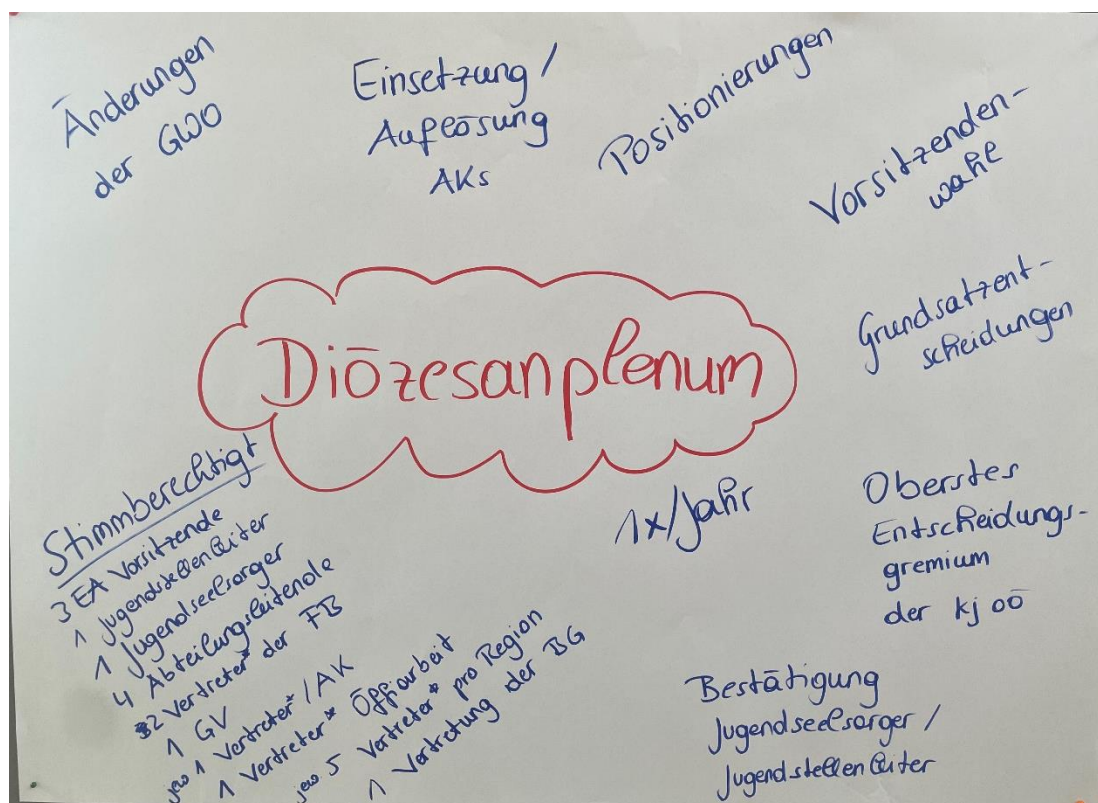 Änderungen
der GWO
Einsetzung /
Auflösung
AKs
Positionierungen
Vorsitzenden-
wahl
Grundsatzent-
scheidungen
Diözesanplenum
1x/Jahr
Oberstes
Entscheidungs-
gremium
der kj oö
Bestätigung
Jugendseelsorger /
Jugendstellenleiter
Stimmberechtigt
3 EA Vorsitzende
1 Jugendstellenleiter
1 Jugendseelsorger
4 Abteilungsleitende
2 Vertreter* der FB
1 GV
jew 1 Vertreter* / AK
1 Vertreter* Öffiarbeit
jew 5 Vertreter* pro Region
1 Vertretung der BG